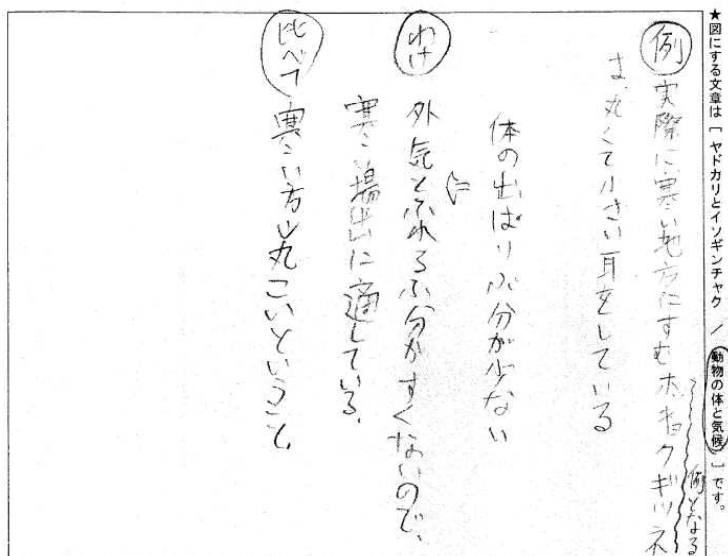 ★図にする文章は〔ヤドカリとイソギンチャク / 動物の体と気候〕です。
例となる
例 実際に寒い地方にすむホッキョクギツネ
は、丸くて小さい耳をしている
体の出ぱりぶ分が少ない
わけ 外気とふれるぶ分がすくないので、
寒い場所に適している、
比べて 寒い方が丸こいということ、